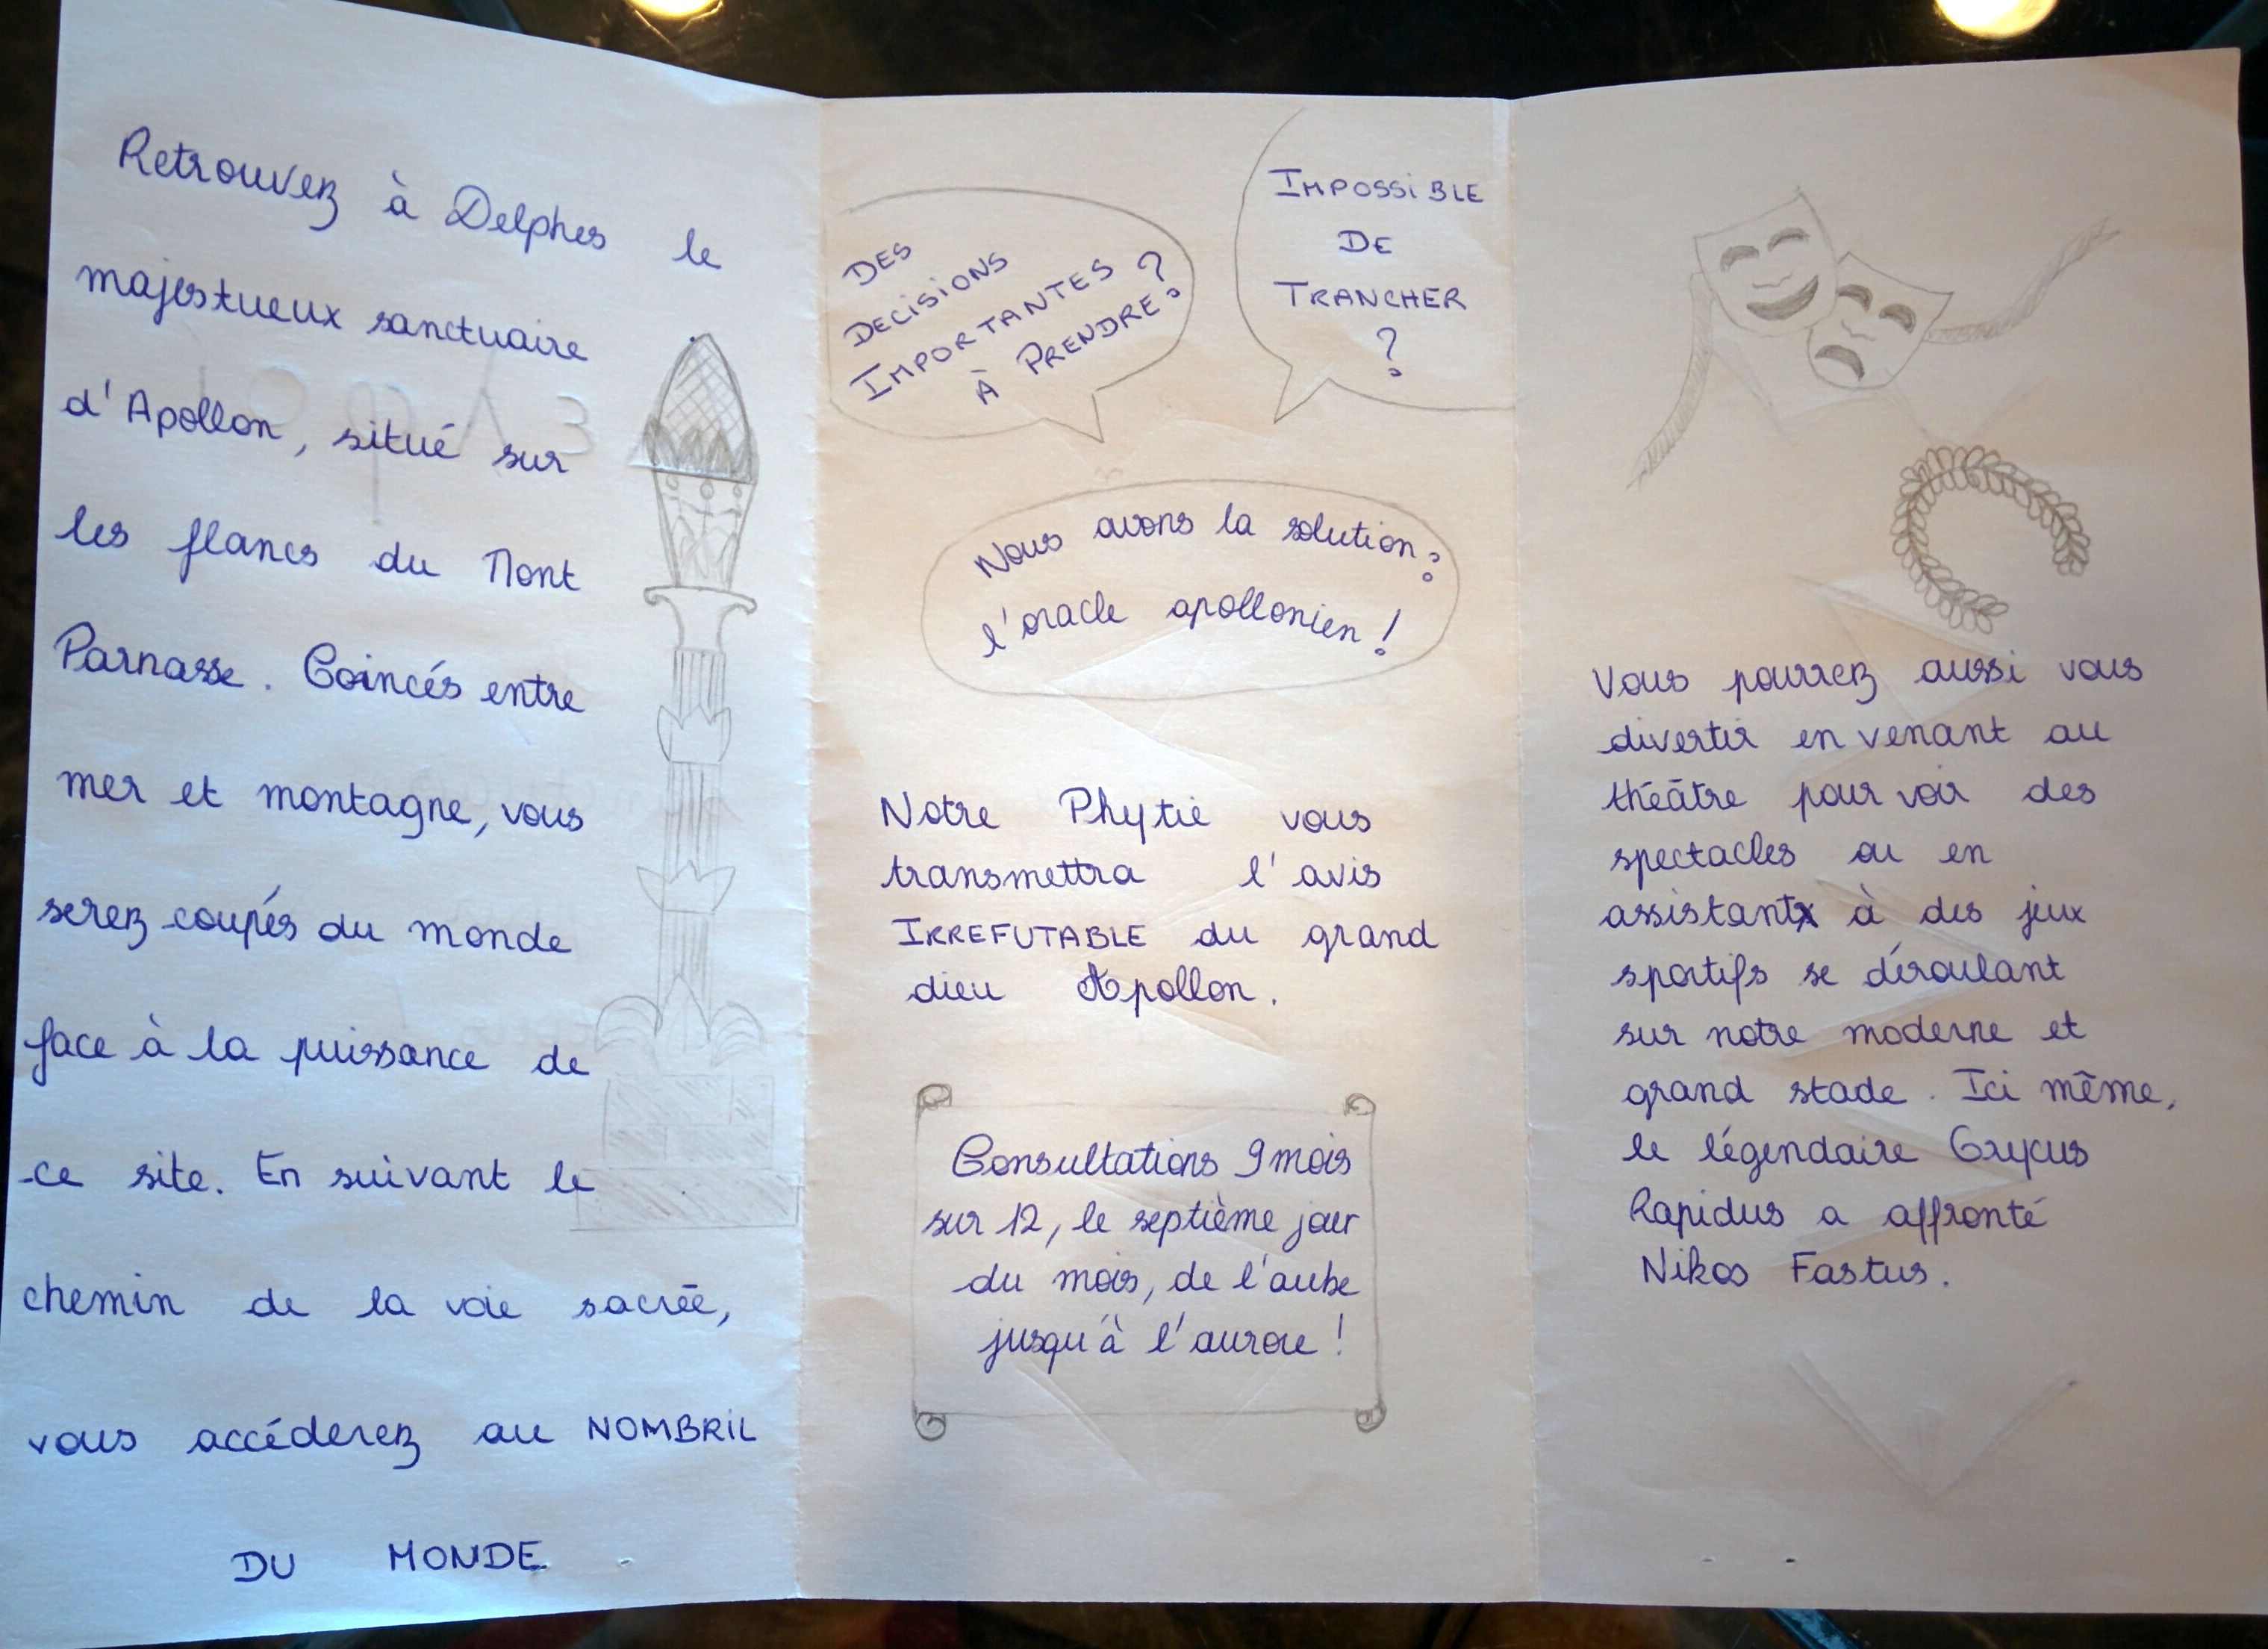 Retrouvez à Delphes le
majestueux sanctuaire
d'Apollon, situé sur
les flancs du Mont
Parnasse. Coincés entre
mer et montagne, vous
serez coupés du monde
face à la puissance de
ce site. En suivant le
chemin de la voie sacrée,
vous accéderez au NOMBRIL
DU MONDE
DES
DECISIONS
IMPORTANTES
À PRENDRE?
IMPOSSIBLE
DE
TRANCHER
?
Nous avons la solution:
l'oracle apollonien!
Notre Phytie vous
transmettra l'avis
IRREFUTABLE du grand
dieu Apollon.
Consultations 9 mois
sur 12, le septième jour
du mois, de l'aube
jusqu'à l'aurore!
Vous pourrez aussi vous
divertir en venant au
théâtre pour voir des
spectacles ou en
assistant à des jeux
sportifs se déroulant
sur notre moderne et
grand stade. Ici même,
le légendaire
Rapidus a affronté
Nikos Fastus.